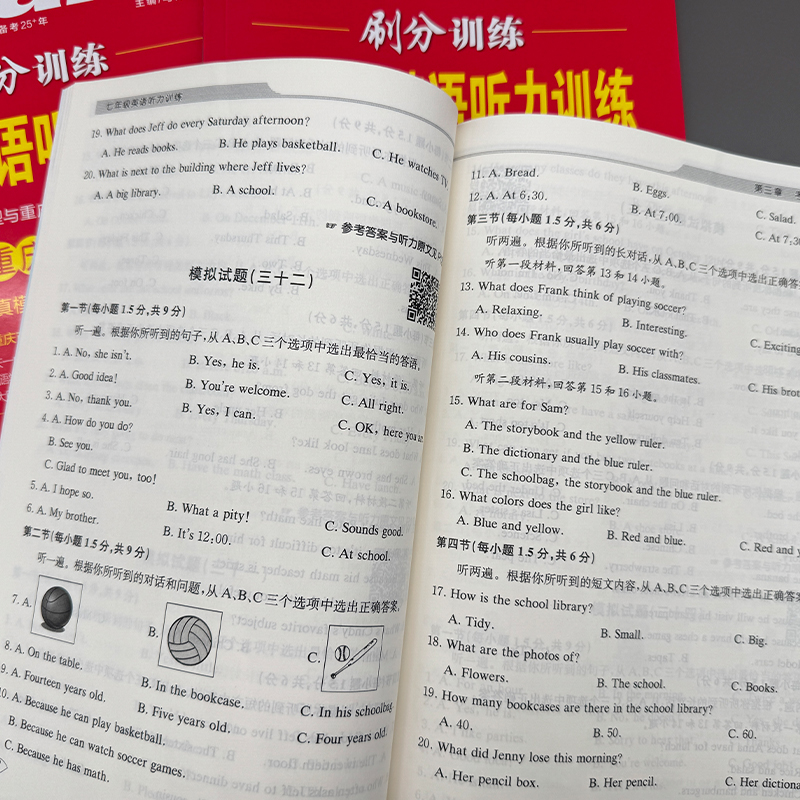 备考25+年
主编
刷分训练
分训练
语听力训练
语听
型与重庆
重庆
真模
七年级英语听力训练
19. What does Jeff do every Saturday afternoon?
A. He reads books. B. He plays basketball. C. He watches TV.
20. What is next to the building where Jeff lives?
A. A big library. B. A school. C. A bookstore.
☞ 参考答案与听力原文见
模拟试题(三十二)
第一节(每小题1.5分,共9分)
听一遍。根据你所听到的句子,从A、B、C三个选项中选出最恰当的答语。
1. A. No, she isn't. B. Yes, he is. C. Yes, it is.
2. A. Good idea! B. You're welcome. C. All right.
3. A. No, thank you. B. Yes, I can. C. OK, here you are
4. A. How do you do?
B. See you.
C. Glad to meet you, too!
5. A. I hope so. B. What a pity! C. Sounds good.
6. A. My brother. B. It's 12:00. C. At school.
第二节(每小题1.5分,共9分)
听一遍。根据你所听到的对话和问题,从A、B、C三个选项中选出正确答案。
7. A. B. C.
8. A. On the table. B. In the bookcase. C. In his schoolbag.
9. A. Fourteen years old. B. Five years old. C. Four years old.
10. A. Because he can play basketball.
B. Because he can watch soccer games.
C. Because he has math.
第三章
11. A. Bread. B. Eggs. C. Salad.
12. A. At 6:30. B. At 7:00. C. At 7:3
第三节(每小题1.5分,共6分)
听两遍。根据你所听到的长对话,从A、B、C三个选项中选出正确答案
听第一段材料,回答第13和14小题。
13. What does Frank think of playing soccer?
A. Relaxing. B. Interesting. C. Exciting
14. Who does Frank usually play soccer with?
A. His cousins. B. His classmates. C. His brot
听第二段材料,回答第15和16小题。
15. What are for Sam?
A. The storybook and the yellow ruler.
B. The dictionary and the blue ruler.
C. The schoolbag, the storybook and the blue ruler.
16. What colors does the girl like?
A. Blue and yellow. B. Red and blue. C. Red and y
第四节(每小题1.5分,共6分)
听两遍。根据你所听到的短文内容,从A、B、C三个选项中选出正确答案
17. How is the school library?
A. Tidy. B. Small. C. Big.
18. What are the photos of?
A. Flowers. B. The school. C. Books.
19. How many bookcases are there in the school library?
A. 40. B. 50. C. 60.
20. What did Jenny lose this morning?
A. Her pencil box. B. Her pencil. C. Her dictiona